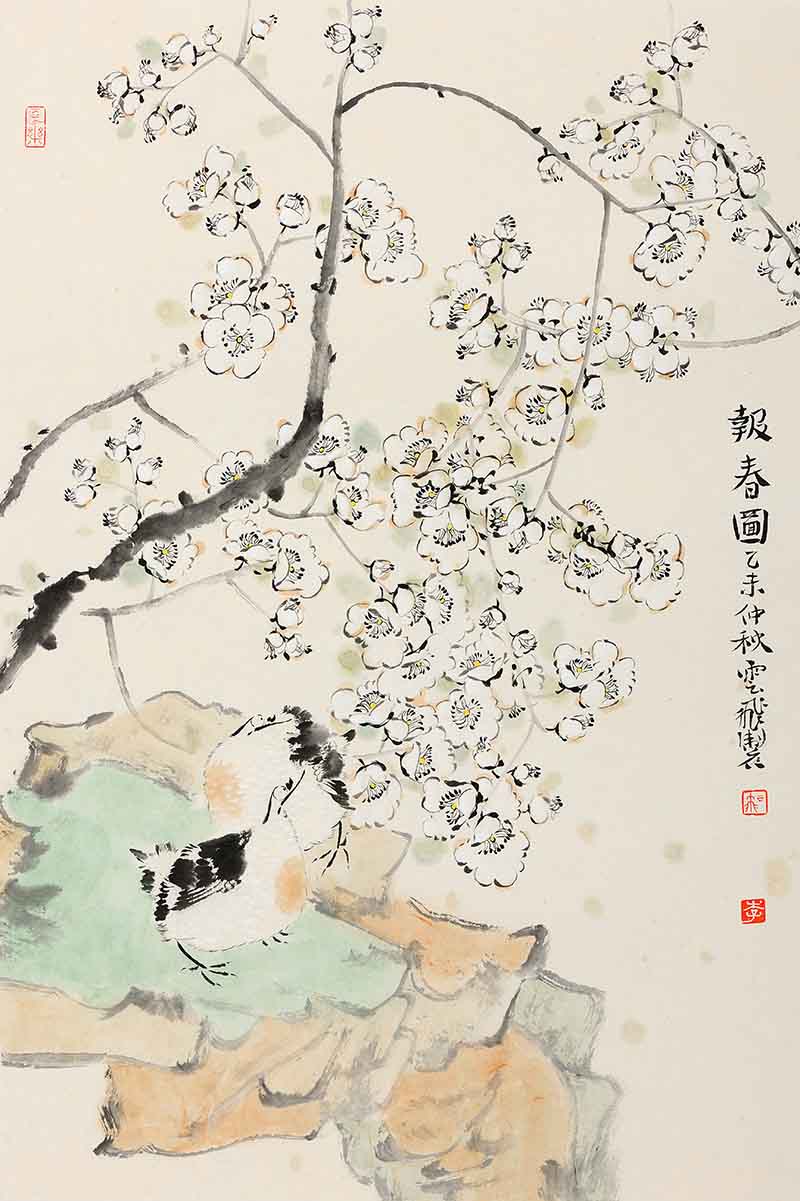 報春圖乙未仲秋雲飛製
李